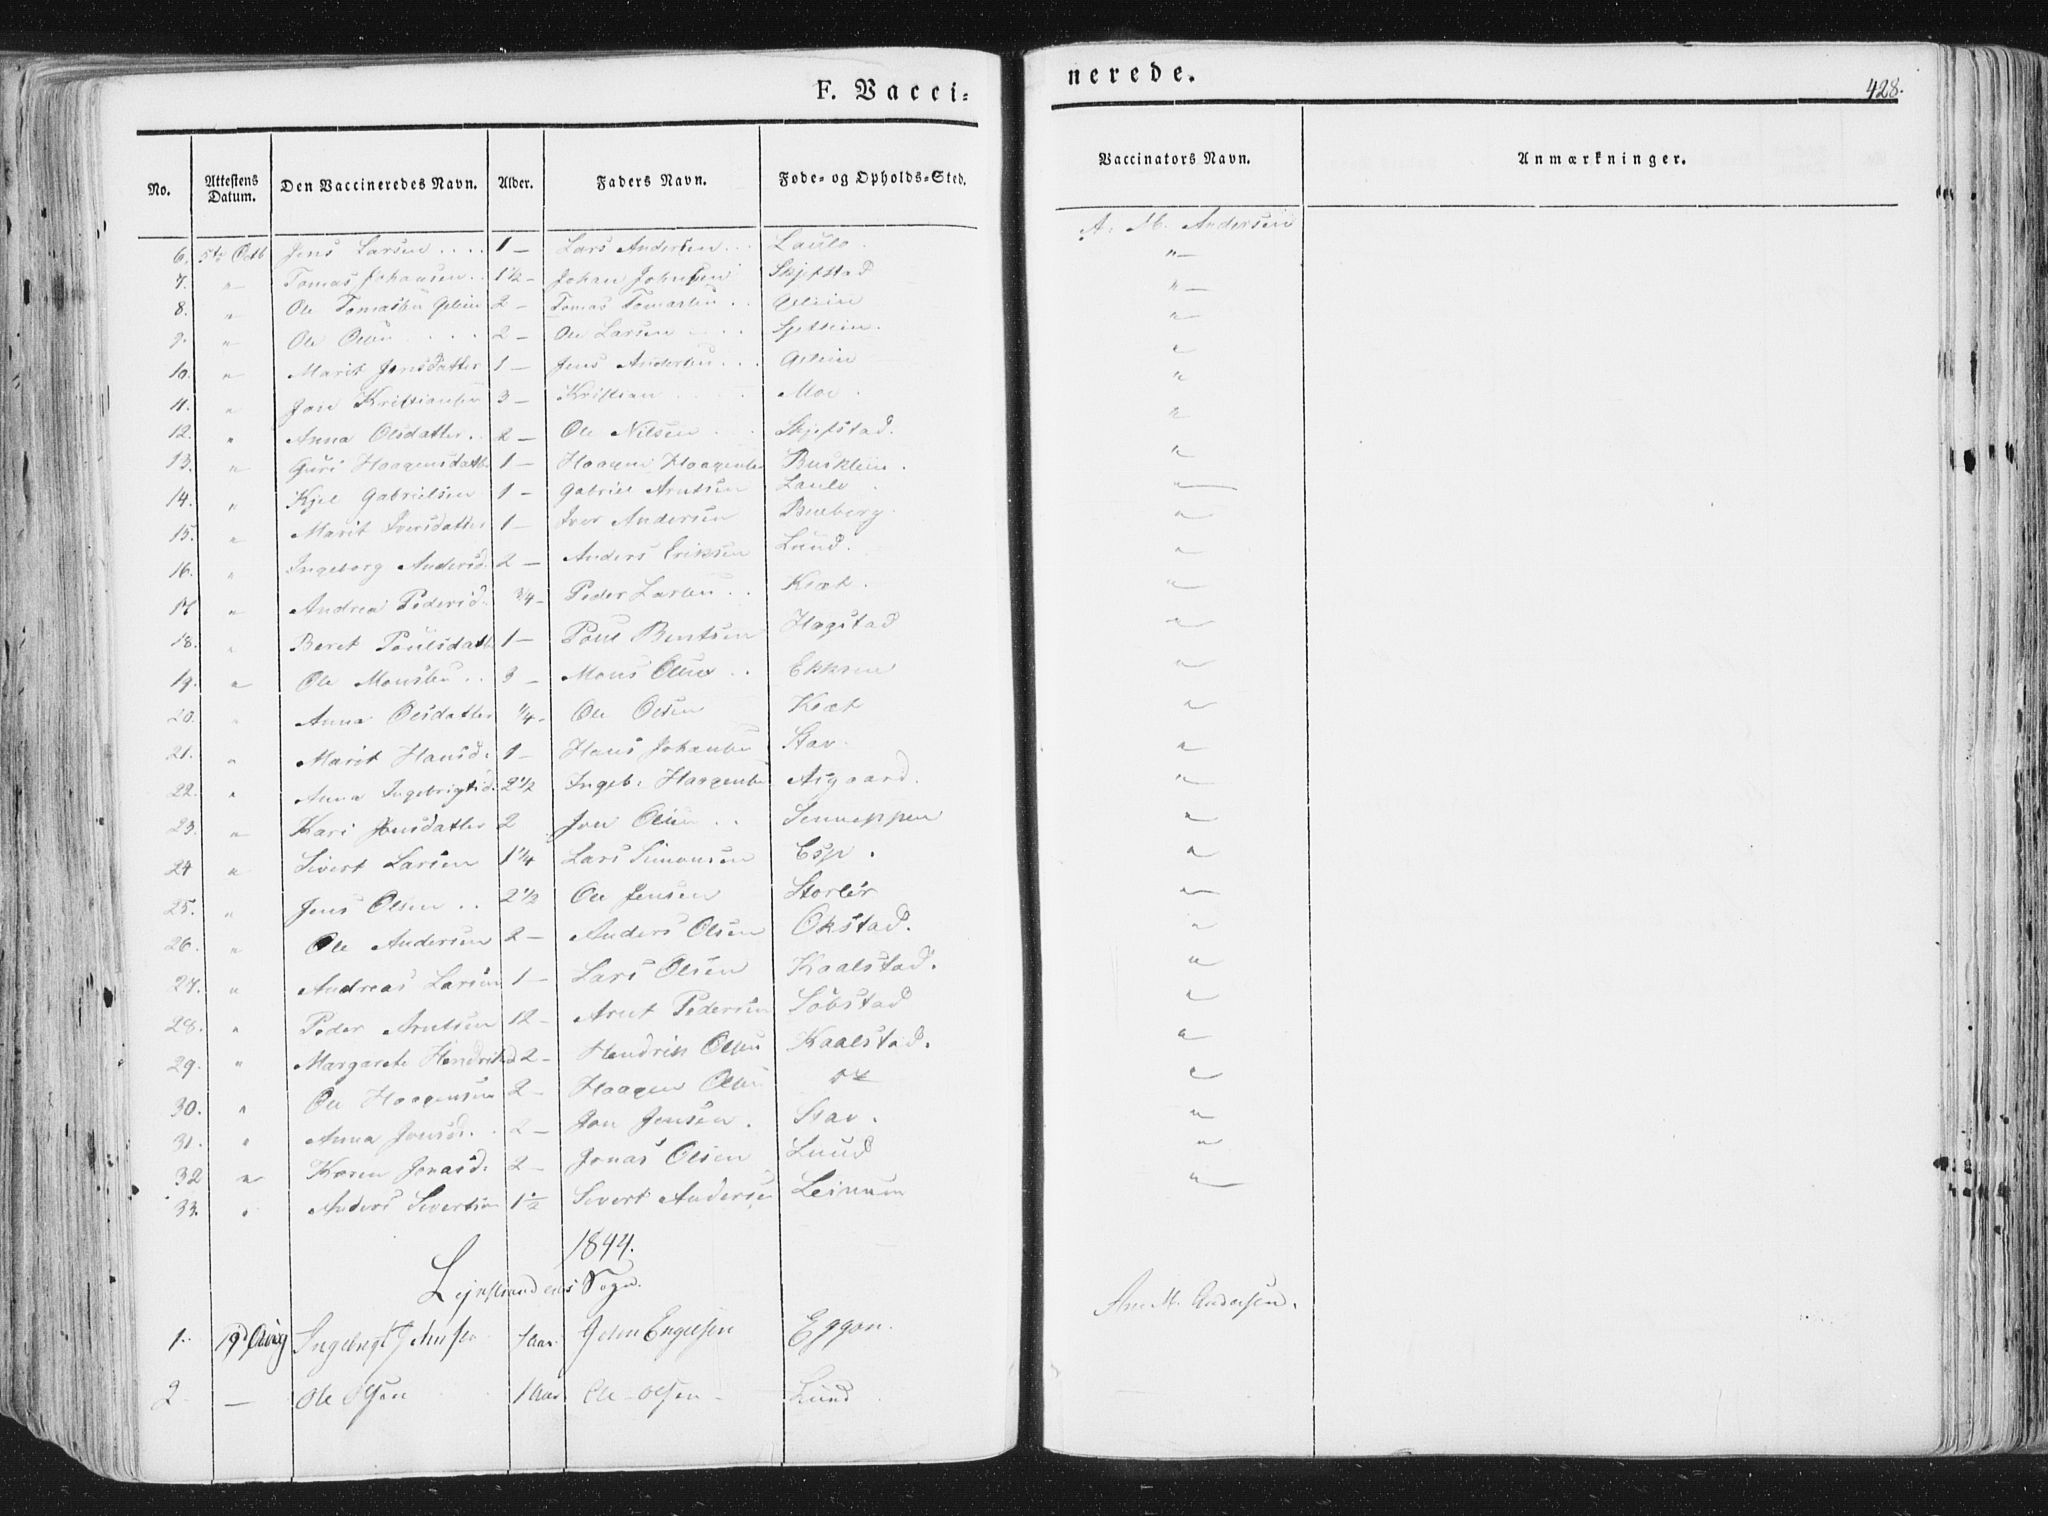 F. Vacci=
nerede.
428.
No. Attestens Datum. Den Vaccineredes Navn. Alder. Faders Navn. Føde- og Opholds-Sted. Vaccinators Navn. Anmærkninger.
6. 5te Octb Jens Larsen .... 1 — Lars Andersen ... Laulo. A. M. Andersen
7. " Tomas Johansen .. 1½ — Johan Johnsen Skjefstad "—
8. " Ole Tomassen 2 — Tomas Tomassen .. "—
9. " Ole Olsen .... 2 — Ole Larsen .... "
10. " Marit Jensdatter 1 — Jens Andersen ... "
11. " Jon Kristiansen 3 — Kristian ..... Moe. "
12. " Anna Olsdatter .. 2 — Ole Nilsen ... Skjefstad. "
13. " Guri Haagensdatter 1 — Haagen Haagensen Busklein. "
14. " Kjel Gabrielsen 1 — Gabriel Arntsen Laulo. "
15. " Marit Iversdatter 1 — Iver Andersen "
16. " Ingeborg Andersd. 2 — Anders Eriksen Lund. "
17. " Andrea Pedersd. ¾ — Peder Larsen .. "
18. " Beret Poulsdatter 1 — Poul Bentsen Hagstad "
19. " Ole Monsen .. 3 — Mons Olsen .. "
20. " Anna Olsdatter ¼ — Ole Olsen "
21. " Marit Hansd. 1 — Hans Johansen Stav. "
22. " Anna Ingebrigtsd. 2½ Ingeb. Haagensen Asgaard. "
23. " Kari Jonsdatter 2 Jon Olsen .. "
24 " Sivert Larsen 1¼ Lars Simonsen Esp. "
25. " Jens Olsen .. 2½ Ole Jensen Storler "
26. " Ole Andersen 2 — Anders Olsen Okstad. "
27. " Andreas Larsen 1 — Lars Olsen Kaalstad. "
28. " Peder Arntsen 12 — Arnt Pedersen Sobstad "
29. " Margarete Hendriksd 2 — Hendrik Olsen Kaalstad. "
30. " Ole Haagensen 2 — Haagen Olsen "
31. " Anna Jonsd. . 2 — Jon Jensen. Stav. "
32 " Karen Jonasd. 2 — Jonas Olsen Lund "
33. " Anders Sivertsen 1½ Sivert Andersen Leinum "
1844.
Lejnstrandens Sogn.
1. 19d Aug Ingebrigt Johnsen 1 Aar. John Engelsen Eggen. Ane M. Andersen.
2 — Ole Olsen 1 Aar Ole Olsen — Lund.